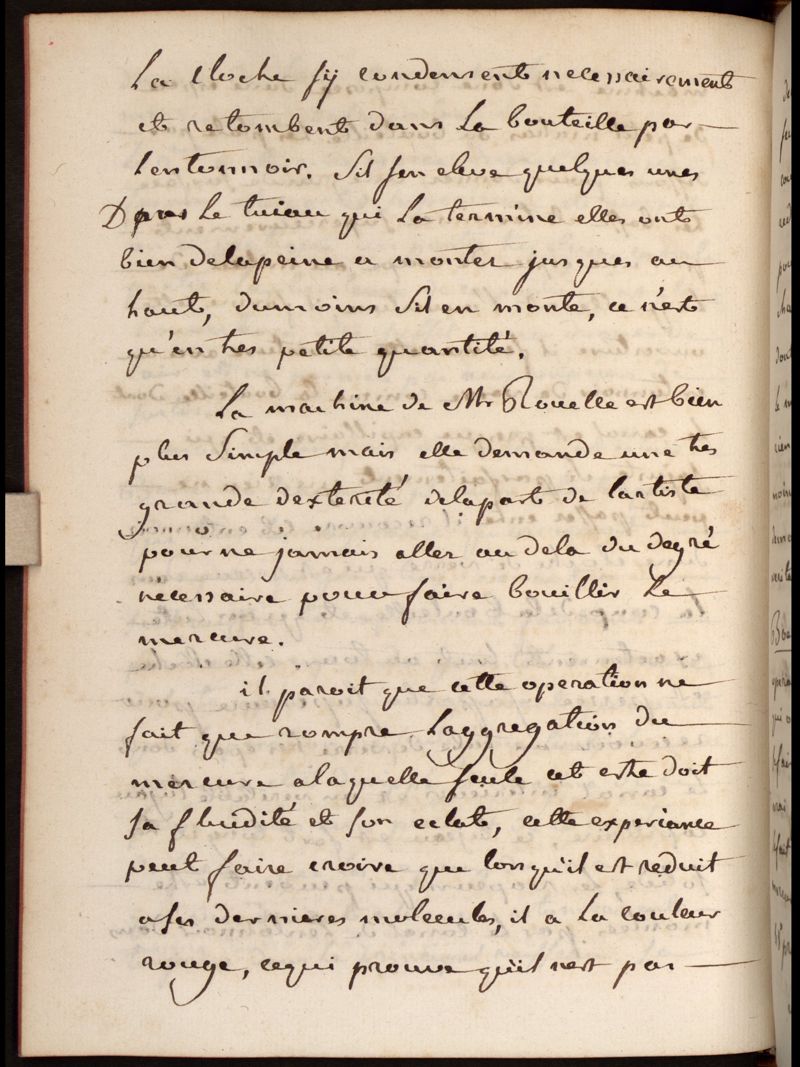 La cloche sy condensent necessairement
et retombent dans La bouteille par
Lentonnoir. Sil sen eleve quelques unes
Dans Le tuiau qui La termine elles ont
bien delapeine a monter jusques au
haut, dumoins Sil en monte, ce n'est
qu'en tres petite quantité.
La machine de Mr Rouelle est bien
plus Simple mais elle demande une tres
grande dexterité delapart de lartiste
pour ne jamais aller au dela du degré
necessaire pour faire bouillir Le
mercure.
il paroit que cette operation ne
fait que rompre Laggregation du
mercure alaquelle seule cet estre doit
sa fluidité et son eclat, cette experiance
peut faire croire que lorsqu'il est reduit
a ses dernieres molecules, il a La couleur
rouge, cequi prouve qu'il n'est pas